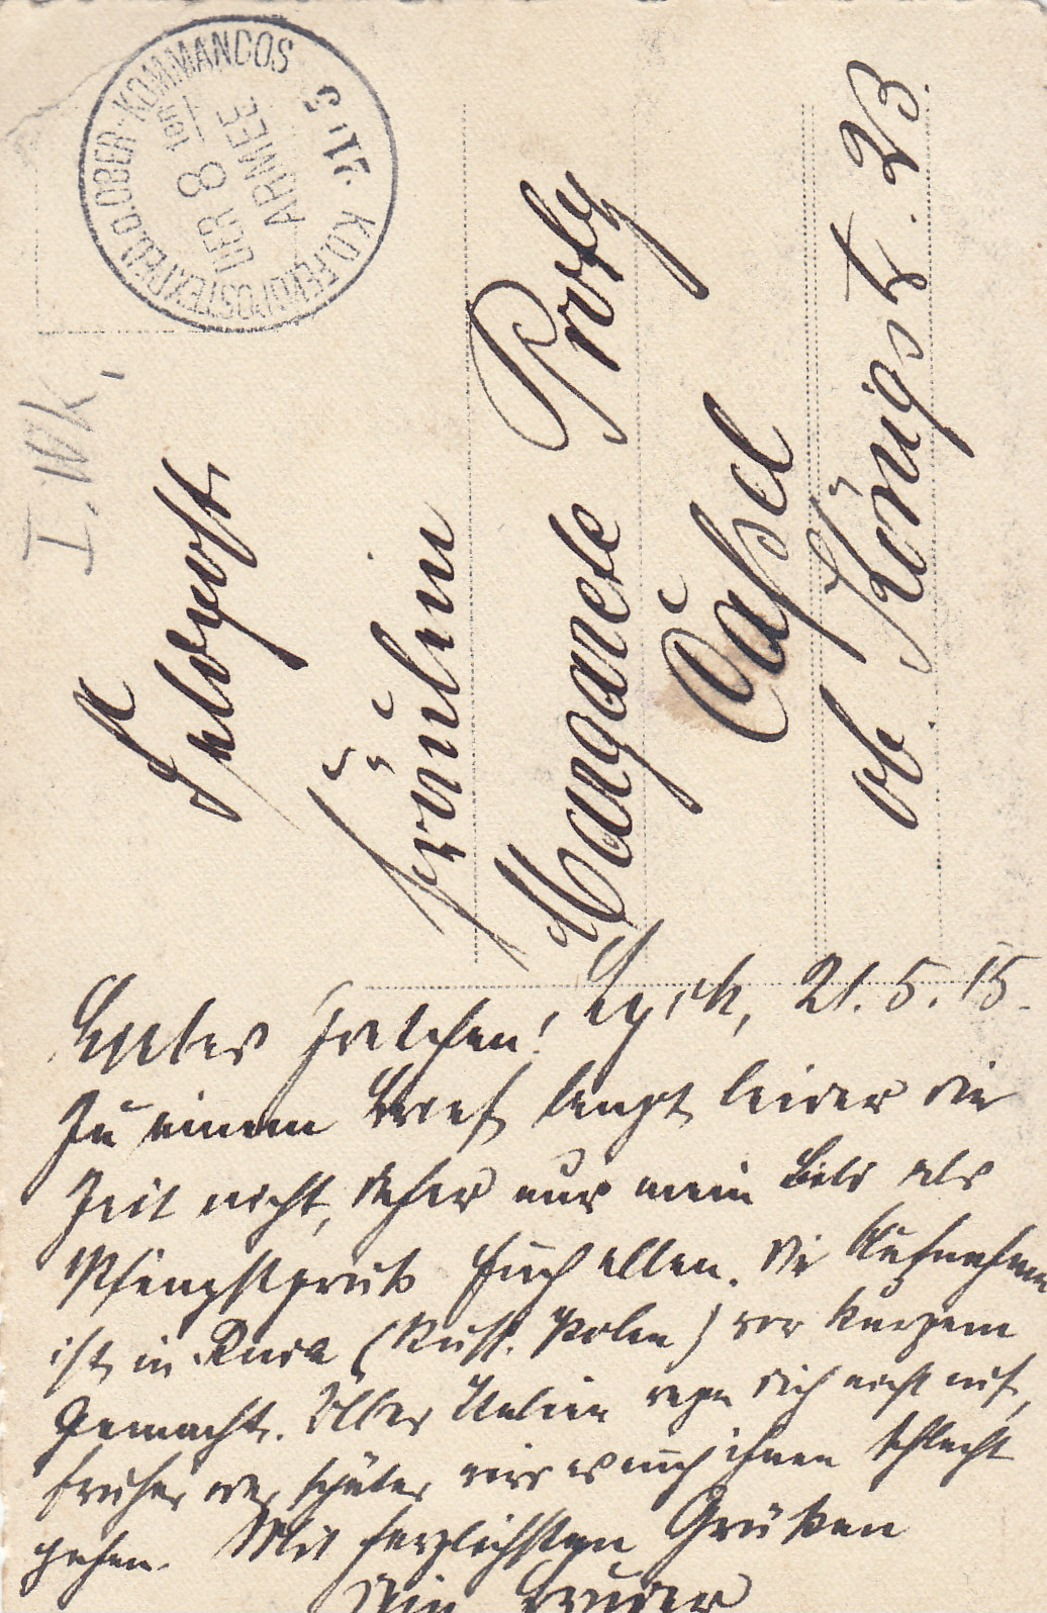 K.D. FELDPOSTEXPED. D. OBER-KOMMANDOS
DER 8 ARMEE
21 5
I. Wk.
Feldpost
Fräulein
Margarete
Cassel
ob. Königst. 23.
Liebes Gretchen! Lyck, 21.5.15.
Zu einem Brief langt leider die
Zeit nicht, daher nur mein Bild als
Pfingstgruß Euch allen. Die Aufnahme
ist in (Russ. Polen) vor kurzem
gemacht. Über Italien rege Dich nicht auf,
früher oder später wird es auch ihnen schlecht
gehen. Mit herzlichsten Grüßen
Dein Bruder